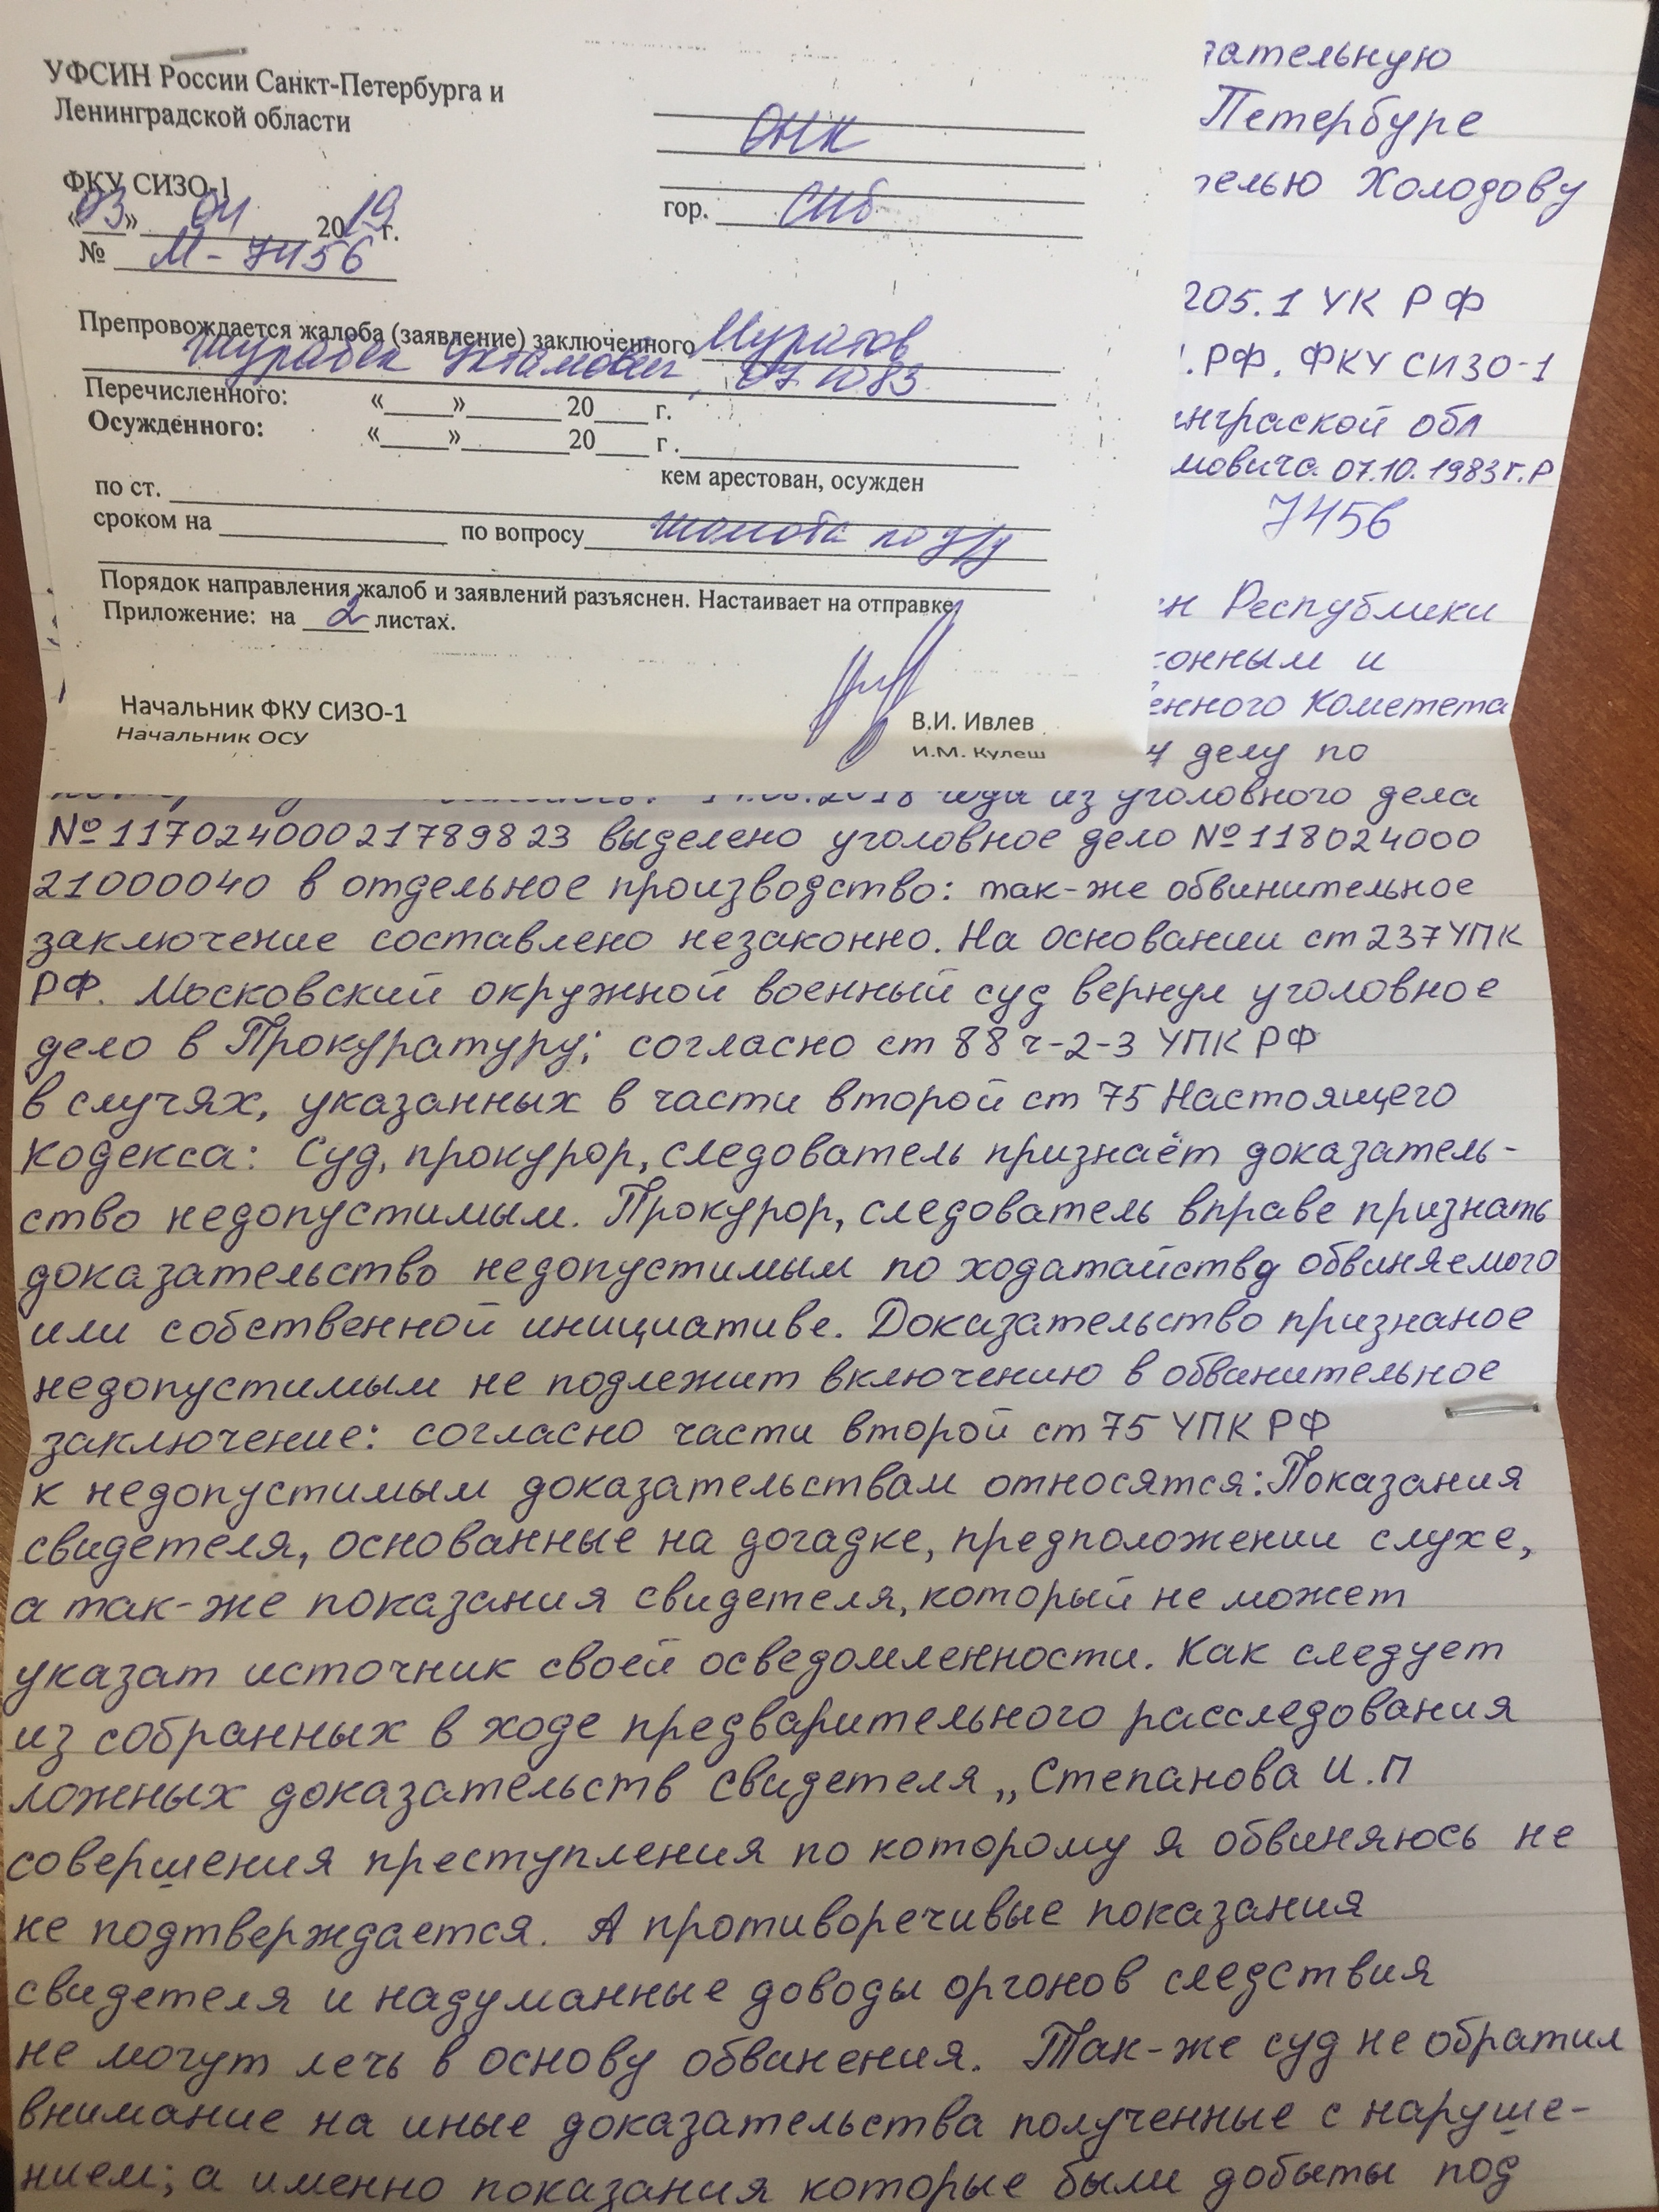 УФСИН России Санкт-Петербурга и
Ленинградской области
ОНК
ФКУ СИЗО-1
«03» 04 2019 г.
гор. СПб
№ М-7456
Препровождается жалоба (заявление) заключенного Муратов
07.10.83
Перечисленного: «____» ______ 20___ г.
Осужденного: «____» ______ 20___ г.
кем арестован, осужден
по ст.
сроком на ______ по вопросу жалоба по у/д
Порядок направления жалоб и заявлений разъяснен. Настаивает на отправке
Приложение: на 2 листах.
Начальник ФКУ СИЗО-1 В.И. Ивлев
Начальник ОСУ И.М. Кулеш
зательную
Петербуре
телью Холодову
205.1 УК РФ
.РФ. ФКУ СИЗО-1
нграской обл
мовича 07.10.1983г.р
7456
н Республики
онным и
енного Кометета
у делу по
14.06.2018 года из уголовного дела
№11702400021789823 выделено уголовное дело №118024000
21000040 в отдельное производство: так-же обвинительное
заключение составлено незаконно. На основании ст 237 УПК
РФ. Московский окружной военный суд вернул уголовное
дело в Прокуратуру; согласно ст 88 ч-2-3 УПК РФ
в случях, указанных в части второй ст 75 Настоящего
Кодекса: Суд, прокурор, следователь признаёт доказатель-
ство недопустимым. Прокурор, следователь вправе признать
доказательство недопустимым по ходатайству обвиняемого
или собственной инициативе. Доказательство признаное
недопустимым не подлежит включению в обвинительное
заключение: согласно части второй ст 75 УПК РФ
к недопустимым доказательствам относятся: Показания
свидетеля, основанные на догадке, предположении слухе,
а так-же показания свидетеля, который не может
указат источник своей осведомленности. Как следует
из собранных в ходе предварительного расследования
ложных доказательств свидетеля „Степанова И.П
совершения преступления по которому я обвиняюсь не
не подтверждается. А противоречивые показания
свидетеля и надуманные доводы оргонов следствия
не могут лечь в основу обвинения. Так-же суд не обратил
внимание на иные доказательства полученные с наруше-
нием; а именно показания которые были добыты под